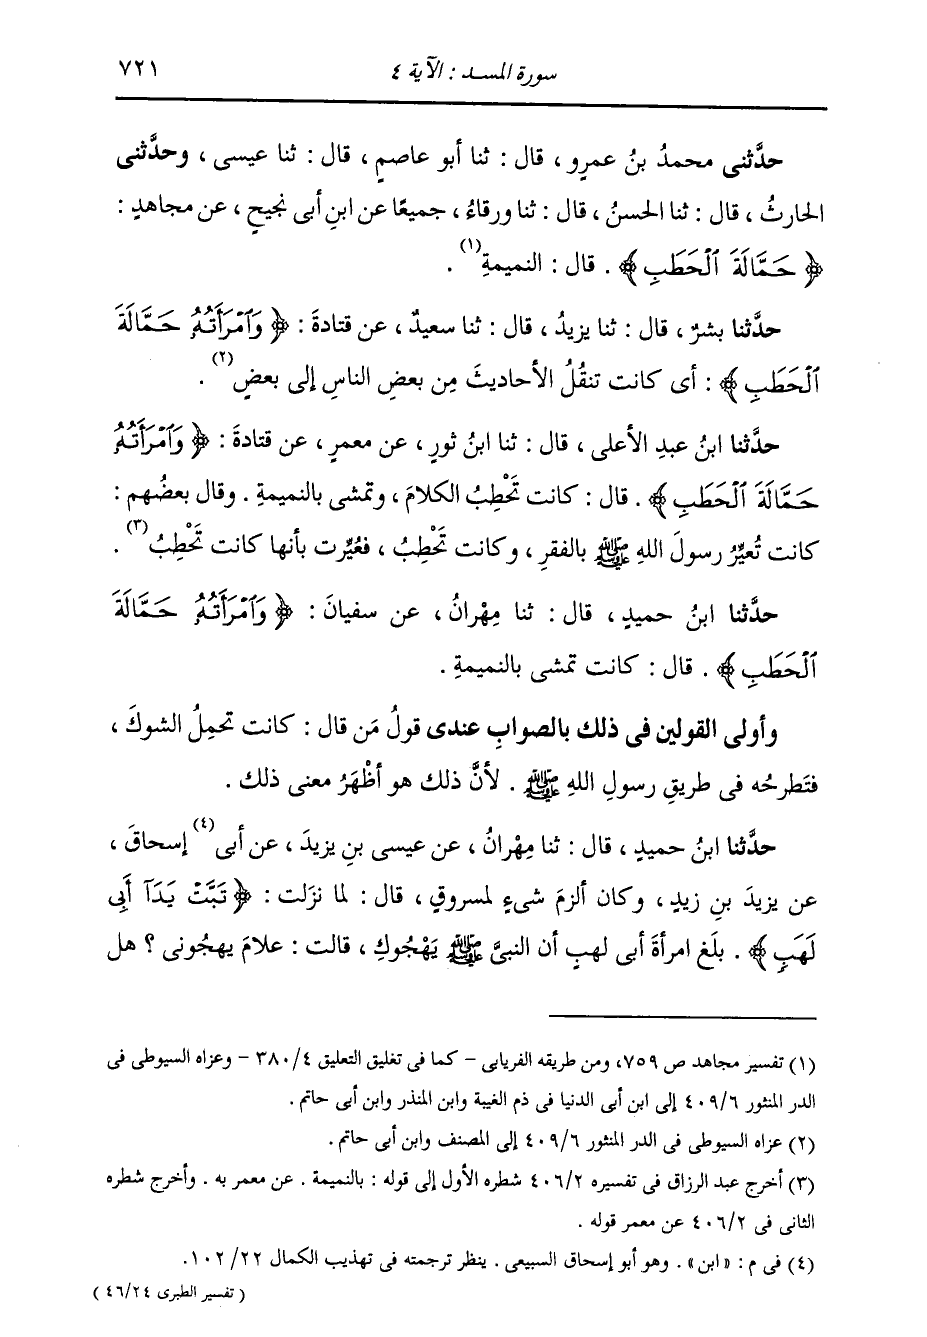 سورة المسد : الآية ٤ ٧٢١
حدَّثنى محمدُ بنُ عمرٍو ، قال : ثنا أبو عاصمٍ ، قال : ثنا عيسى ، وحدَّثنى
الحارثُ ، قال : ثنا الحسنُ ، قال : ثنا ورقاءُ ، جميعًا عن ابنِ أبى نجيحٍ ، عن مجاهدٍ :
﴿ حَمَّالَةَ ٱلْحَطَبِ ﴾ . قال : النميمةِ(١) .
حدَّثنا بشرٌ ، قال : ثنا يزيدُ ، قال : ثنا سعيدٌ ، عن قتادةَ : ﴿ وَٱمْرَأَتُهُۥ حَمَّالَةَ
ٱلْحَطَبِ ﴾ : أى كانت تنقُلُ الأحاديثَ مِن بعضِ الناسِ إلى بعضٍ(٢) .
حدَّثنا ابنُ عبدِ الأعلى ، قال : ثنا ابنُ ثورٍ ، عن معمرٍ ، عن قتادةَ : ﴿ وَٱمْرَأَتُهُۥ
حَمَّالَةَ ٱلْحَطَبِ ﴾ . قال : كانت تَحْطِبُ الكلامَ ، وتمشى بالنميمةِ . وقال بعضُهم :
كانت تُعيِّرُ رسولَ اللهِ ﷺ بالفقرِ ، وكانت تَحْطِبُ ، فعُيِّرت بأنها كانت تَحْطِبُ(٣) .
حدَّثنا ابنُ حميدٍ ، قال : ثنا مِهْرانُ ، عن سفيانَ : ﴿ وَٱمْرَأَتُهُۥ حَمَّالَةَ
ٱلْحَطَبِ ﴾ . قال : كانت تمشى بالنميمةِ .
وأولى القولين فى ذلك بالصوابِ عندى قولُ مَن قال : كانت تحمِلُ الشوكَ ،
فتَطرحُه فى طريقِ رسولِ اللهِ ﷺ . لأنَّ ذلك هو أظْهَرُ معنى ذلك .
حدَّثنا ابنُ حميدٍ ، قال : ثنا مِهْرانُ ، عن عيسى بنِ يزيدَ ، عن أبى(٤) إسحاقَ ،
عن يزيدَ بنِ زيدٍ ، وكان ألزمَ شىءٍ لمسروقٍ ، قال : لما نزَلت : ﴿ تَبَّتْ يَدَآ أَبِى
لَهَبٍ ﴾ . بلَغ امرأةَ أبى لهبٍ أن النبىَّ ﷺ يَهْجُوكِ ، قالت : علامَ يهجُونى ؟ هل
(١) تفسير مجاهد ص ٧٥٩، ومن طريقه الفريابى – كما فى تغليق التعليق ٣٨٠/٤ – وعزاه السيوطى فى
الدر المنثور ٤٠٩/٦ إلى ابن أبى الدنيا فى ذم الغيبة وابن المنذر وابن أبى حاتم .
(٢) عزاه السيوطى فى الدر المنثور ٤٠٩/٦ إلى المصنف وابن أبى حاتم .
(٣) أخرج عبد الرزاق فى تفسيره ٤٠٦/٢ شطره الأول إلى قوله : بالنميمة . عن معمر به . وأخرج شطره
الثانى فى ٤٠٦/٢ عن معمر قوله .
(٤) فى م : «ابن» . وهو أبو إسحاق السبيعى . ينظر ترجمته فى تهذيب الكمال ١٠٢/٢٢ .
( تفسير الطبرى ٤٦/٢٤ )